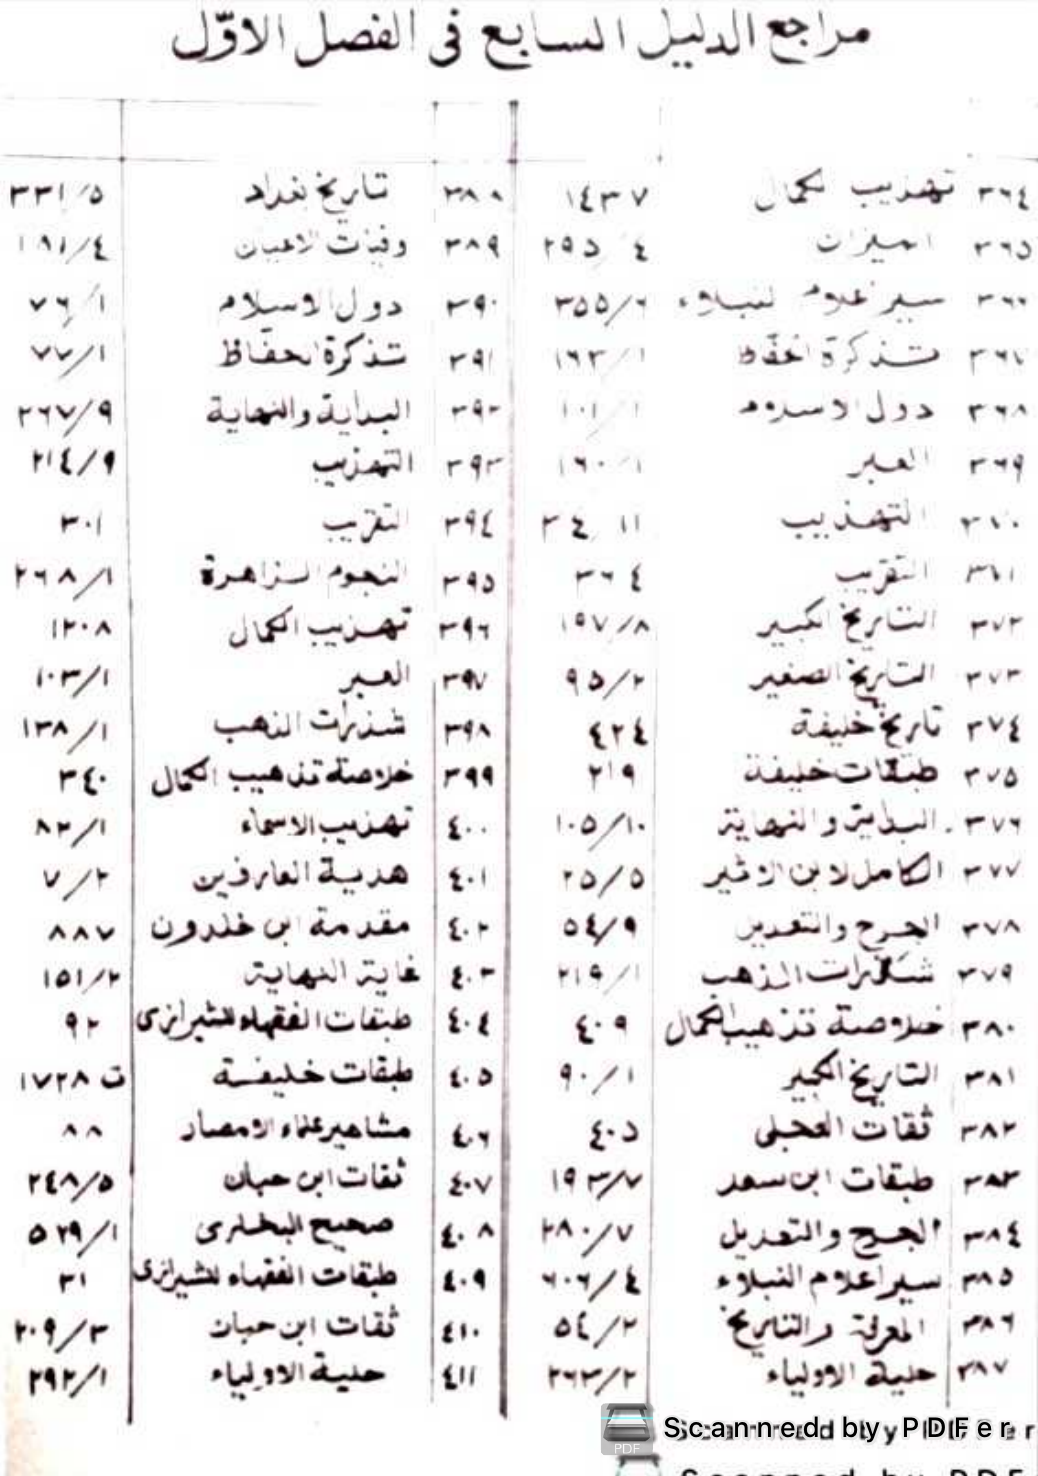 مراجع الدليل السابع في الفصل الاوّل
٣٦٤ تهذيب لكمال ١٤٣٧
٣٦٥ الميزان ٤/٢٩٥
٣٦٦ سير أعلام النبلاء ٣٥٥/٦
٣٦٧ تذكرة الحفّاظ ١٦٣/١
٣٦٨ دول الاسلام ١٠١/١
٣٦٩ العبر ١٦٠/١
٣٧٠ التهذيب ١١/٣٤
٣٧١ التقريب ٣٦٤
٣٧٢ التاريخ الكبير ١٩٧/٨
٣٧٣ التاريخ الصغير ٩٥/٢
٣٧٤ تاريخ خليفة ٤٢٤
٣٧٥ طبقات خليفة ٢١٩
٣٧٦ البداية والنهاية ١٠٥/١٠
٣٧٧ الكامل لابن الاثير ٢٥/٥
٣٧٨ الجرح والتعديل ٥٤/٩
٣٧٩ شذرات الذهب ٢١٩/١
٣٨٠ خلاصة تذهيب الكمال ٤٠٩
٣٨١ التاريخ الكبير ٩٠/١
٣٨٢ ثقات العجلى ٤٠٥
٣٨٣ طبقات ابن سعد ١٩٣/٧
٣٨٤ الجرح والتعديل ٢٨٠/٧
٣٨٥ سير اعلام النبلاء ٦٠٦/٤
٣٨٦ المعرفة والتاريخ ٥٤/٢
٣٨٧ حلية الاولياء ٢٦٣/٢
٣٨٨ تاريخ بغداد ٣٣١/٥
٣٨٩ وفيات الاعيان ١٨١/٤
٣٩٠ دول الاسلام ٧٦/١
٣٩١ تذكرة الحفّاظ ٧٧/١
٣٩٢ البداية والنهاية ٢٦٧/٩
٣٩٣ التهذيب ٢١٤/٩
٣٩٤ التقريب ٣٠١
٣٩٥ النجوم الزاهرة ٢٦٨/١
٣٩٦ تهذيب الكمال ١٢٠٨
٣٩٧ العبر ١٠٣/١
٣٩٨ شذرات الذهب ١٣٨/١
٣٩٩ خلاصة تذهيب الكمال ٣٤٠
٤٠٠ تهذيب الاسماء ٨٢/١
٤٠١ هدية العارفين ٧/٢
٤٠٢ مقدمة ابن خلدون ٨٨٧
٤٠٣ غاية النهاية ١٥١/٢
٤٠٤ طبقات الفقهاء للشيرازى ٩٢
٤٠٥ طبقات خليفة ت ١٧٢٨
٤٠٦ مشاهير علماء الامصار ٨٨
٤٠٧ ثقات ابن حبان ٢٤٨/٥
٤٠٨ صحيح البخارى ٥٢٩/١
٤٠٩ طبقات الفقهاء للشيرازى ٣١
٤١٠ ثقات ابن حبان ٢٠٩/٣
٤١١ حلية الاولياء ٢٩٢/١
PDF
Scanned by PDFer